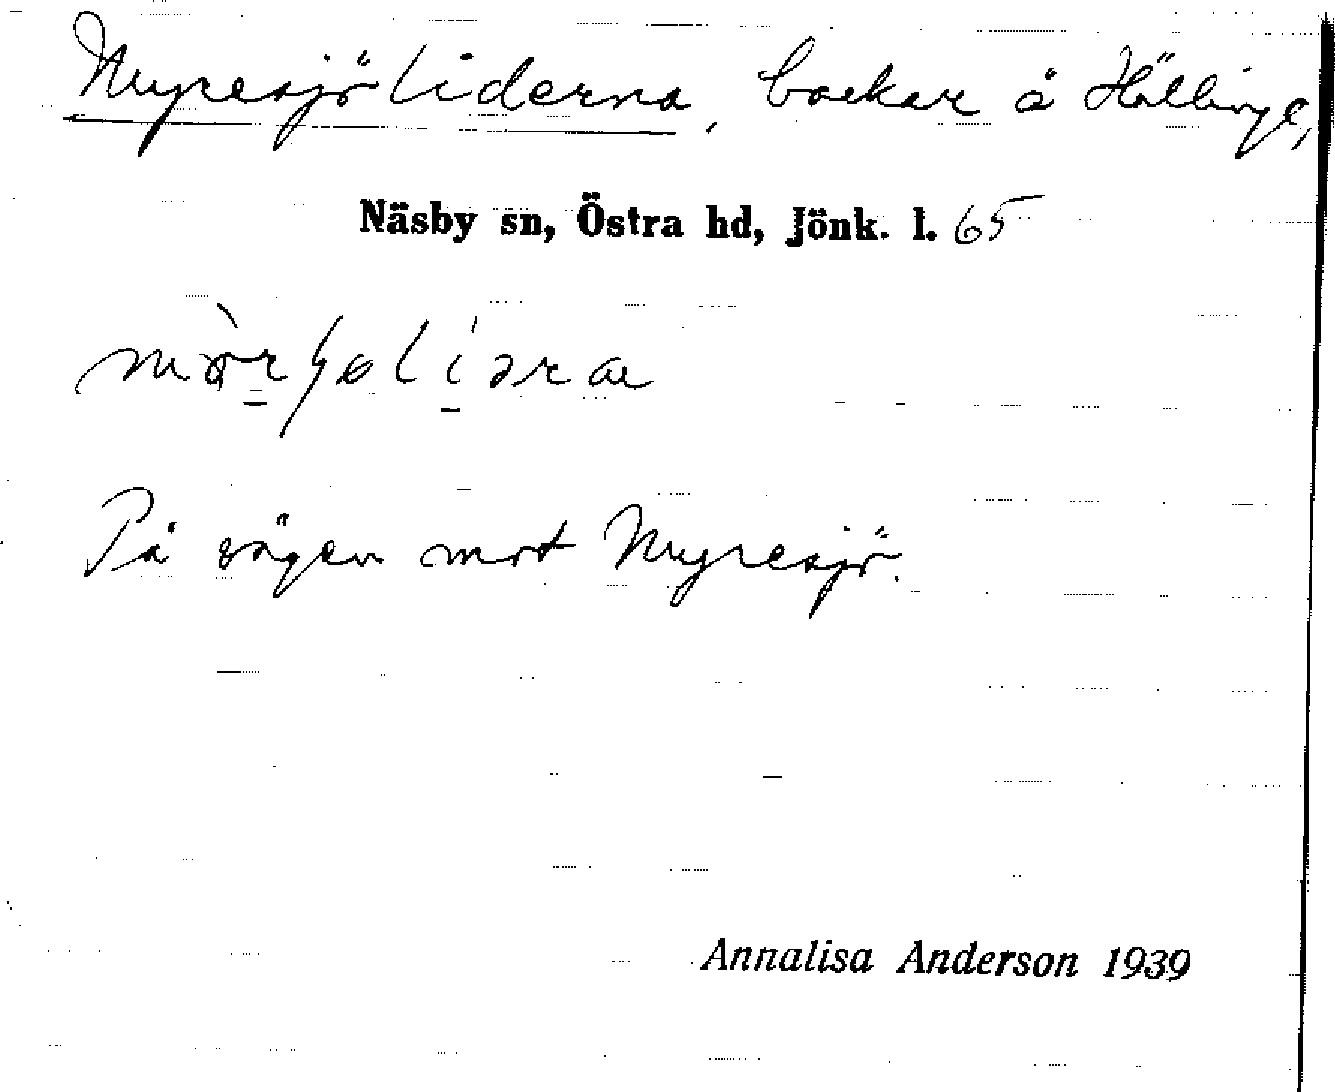 Myresjöliderna, backar å Hällinge,
Näsby sn, Östra hd, Jönk. l. 65
På vägen mot Myresjö.
Annalisa Anderson 1939